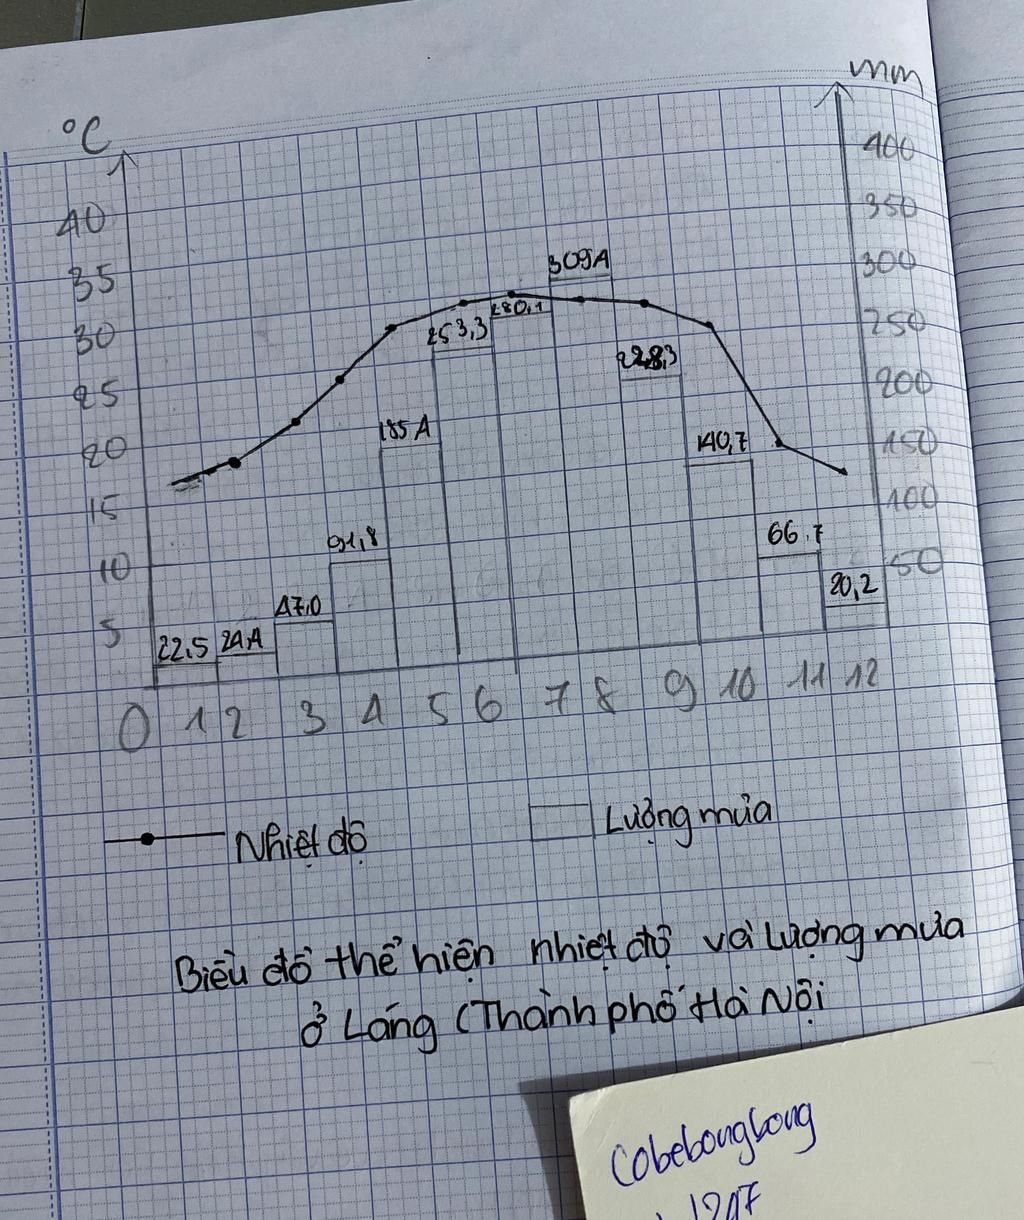 °C
mm
40
35
30
25
20
15
10
5
400
350
300
250
200
150
100
50
22,5
24,4
47,0
91,8
185,4
253,3
280,1
309,4
228,3
140,7
66,7
20,2
0 1 2 3 4 5 6 7 8 9 10 11 12
Nhiệt độ
Lượng mưa
Biểu đồ thể hiện nhiệt độ và lượng mưa
ở Láng (Thành phố Hà Nội
Cobebongbong